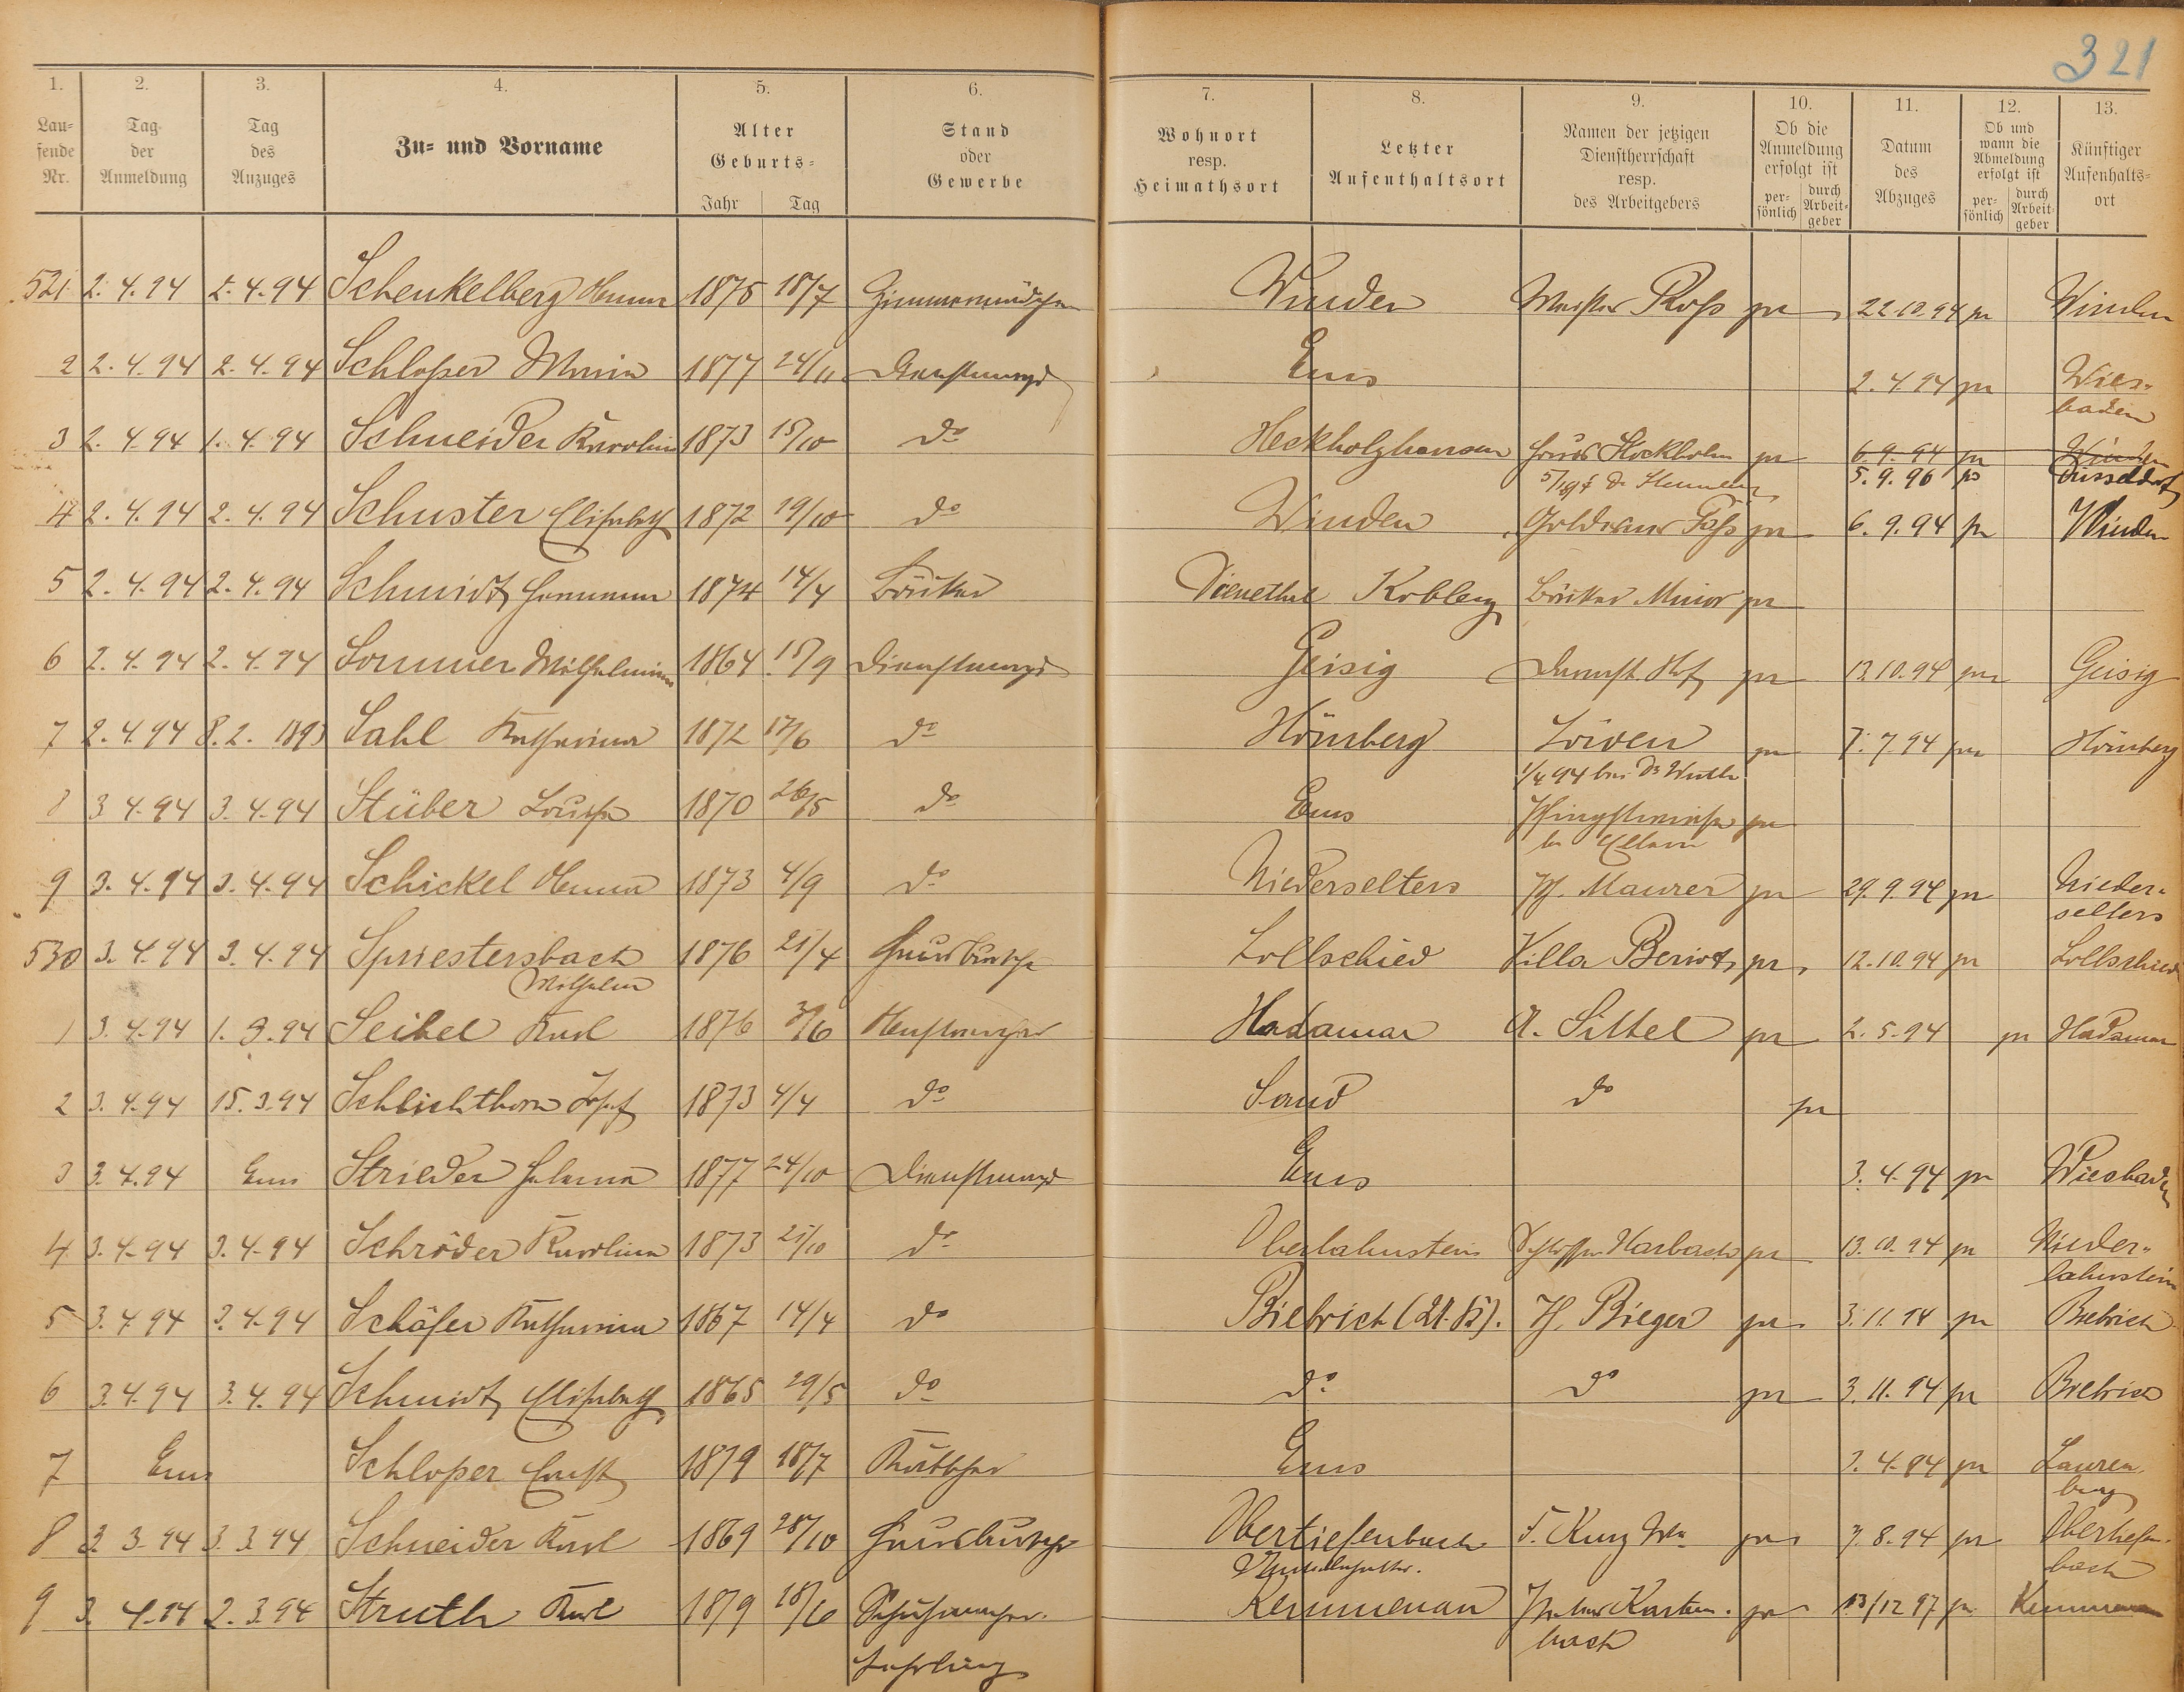 321
1. 2. 3. 4. 5. 6. 7. 8. 9. 10. 11. 12. 13.
Lau-fende Nr. Tag der Anmeldung Tag des Anzuges Zu- und Vorname Alter Geburts- Jahr Tag Stand oder Gewerbe Wohnort resp. Heimathsort Letzter Aufenthaltsort Namen der jetzigen Dienstherrschaft resp. des Arbeitgebers Ob die Anmeldung erfolgt ist per-sönlich durch Arbeit-geber Datum des Abzuges Ob und wann die Abmeldung erfolgt ist per-sönlich durch Arbeit-geber Künftiger Aufenhalts-ort
521 2.4.94 2.4.94 Schenkelberg Anna 1875 18/7 Zimmermädchen Winden pr 22.10.94 pr Winden
2 2.4.94 2.4.94 Schloßer Maria 1877 24/11 Dienstmagd Ems 2.4.94 pr Wies-
baden
3 2.4.94 1.4.94 Schneider Karolina 1873 15/10 do Heckholzhausen Stockholm pr 6.9.94 pr Winden
5.9.96 Düsseldorf
4 2.4.94 2.4.94 Schuster Elisabeth 1872 19/10 do Winden pr 6.9.94 pr Winden
5 2.4.94 2.4.94 Schmidt Hermann 1874 14/4 Bäcker Dienethal Koblenz Bäcker Minor pr
6 2.4.94 2.4.94 Sommer Wilhelmine 1864 15/9 Dienstmagd Geisig Darmst. Hof pr 13.10.94 pr Geisig
7 2.4.94 8.2.1893 Sahl Katharina 1872 17/6 do Hömberg Löwen pr 7.7.94 pr Hömberg
8 3.4.94 3.4.94 Stüber Louise 1870 26/5 do Ems Pfingstwiese pr
9 3.4.94 3.4.94 Schickel Anna 1873 4/9 do Niederselters Maurer pr 29.9.94 pr Nieder-
selters
530 3.4.94 3.4.94 Spriestersbach 1876 21/4 Hausbursche Lollschied Villa Beriot pr 12.10.94 pr Lollschied
Wilhelm
1 3.4.94 1.3.94 Seibel Karl 1876 Hadamar A. Sittel pr 2.5.94 pr Hadamar
2 3.4.94 15.3.94 Schlichthorn Josef 1873 4/4 do Sand do pr
3 3.4.94 Ems Strieder Helena 1877 24/10 Dienstmagd Ems 3.4.94 pr Wiesbaden
4 3.4.94 3.4.94 Schröder Karolina 1873 21/10 do Oberlahnstein Schlosser Harbach pr 13.10.94 pr Nieder-
lahnstein
5 3.4.94 3.4.94 Schäfer Katharina 1867 14/4 do Biebrich Bieger pr 3.11.94 pr Biebrich
6 3.4.94 3.4.94 Schmidt Elisabeth 1865 29/5 do do do pr 3.11.94 pr Biebrich
7 Ems Schloßer Ernst 1879 18/7 Ems 3.4.94 pr Lauren-
burg
8 3.3.94 3.3.94 Schneider Karl 1869 28/10 Hausbursche Obertiefenbach Kunz pr 7.8.94 pr Obertiefen-
bach
9 3.4.94 2.3.94 Struth Karl 1879 18/6 Schuhmacher- Kemmenau Karten- pr 13/12 97 pr Kemmenau
bach
Lehrling